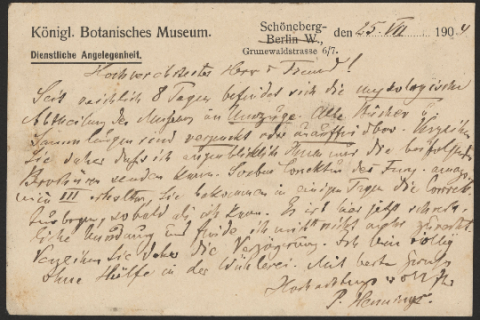 Königl. Botanisches Museum.
Dienstliche Angelegenheit.
Schöneberg-
Berlin W.,
Grunewaldstrasse 6/7.
den 25. VII 1904
Hochverehrtester Herr u Freund!
Seit reichlich 8 Tagen befindet sich die mykologische
Abtheilung des Museums im Umzuge. Alle Bücher u
Sammlungen sind verpackt oder unauffindbar. Verzeihen
Sie daher daß ich augenblicklich Ihnen nur die
Broschüren senden kann. Soeben Correktur der Fung. amazo-
nici III erhalten, Sie bekommen in einigen Tagen die
, sobald als ich kann. Es ist hier jetzt schreck-
liche Unordnung und finde ich mich nicht mehr zurecht.
Verzeihen Sie daher die Verzögerung. Ich bin völlig
ohne Hülfe in der Wühlerei. Mit besten Gruß
Hochachtungsvoll Ihr
P. Hennings.